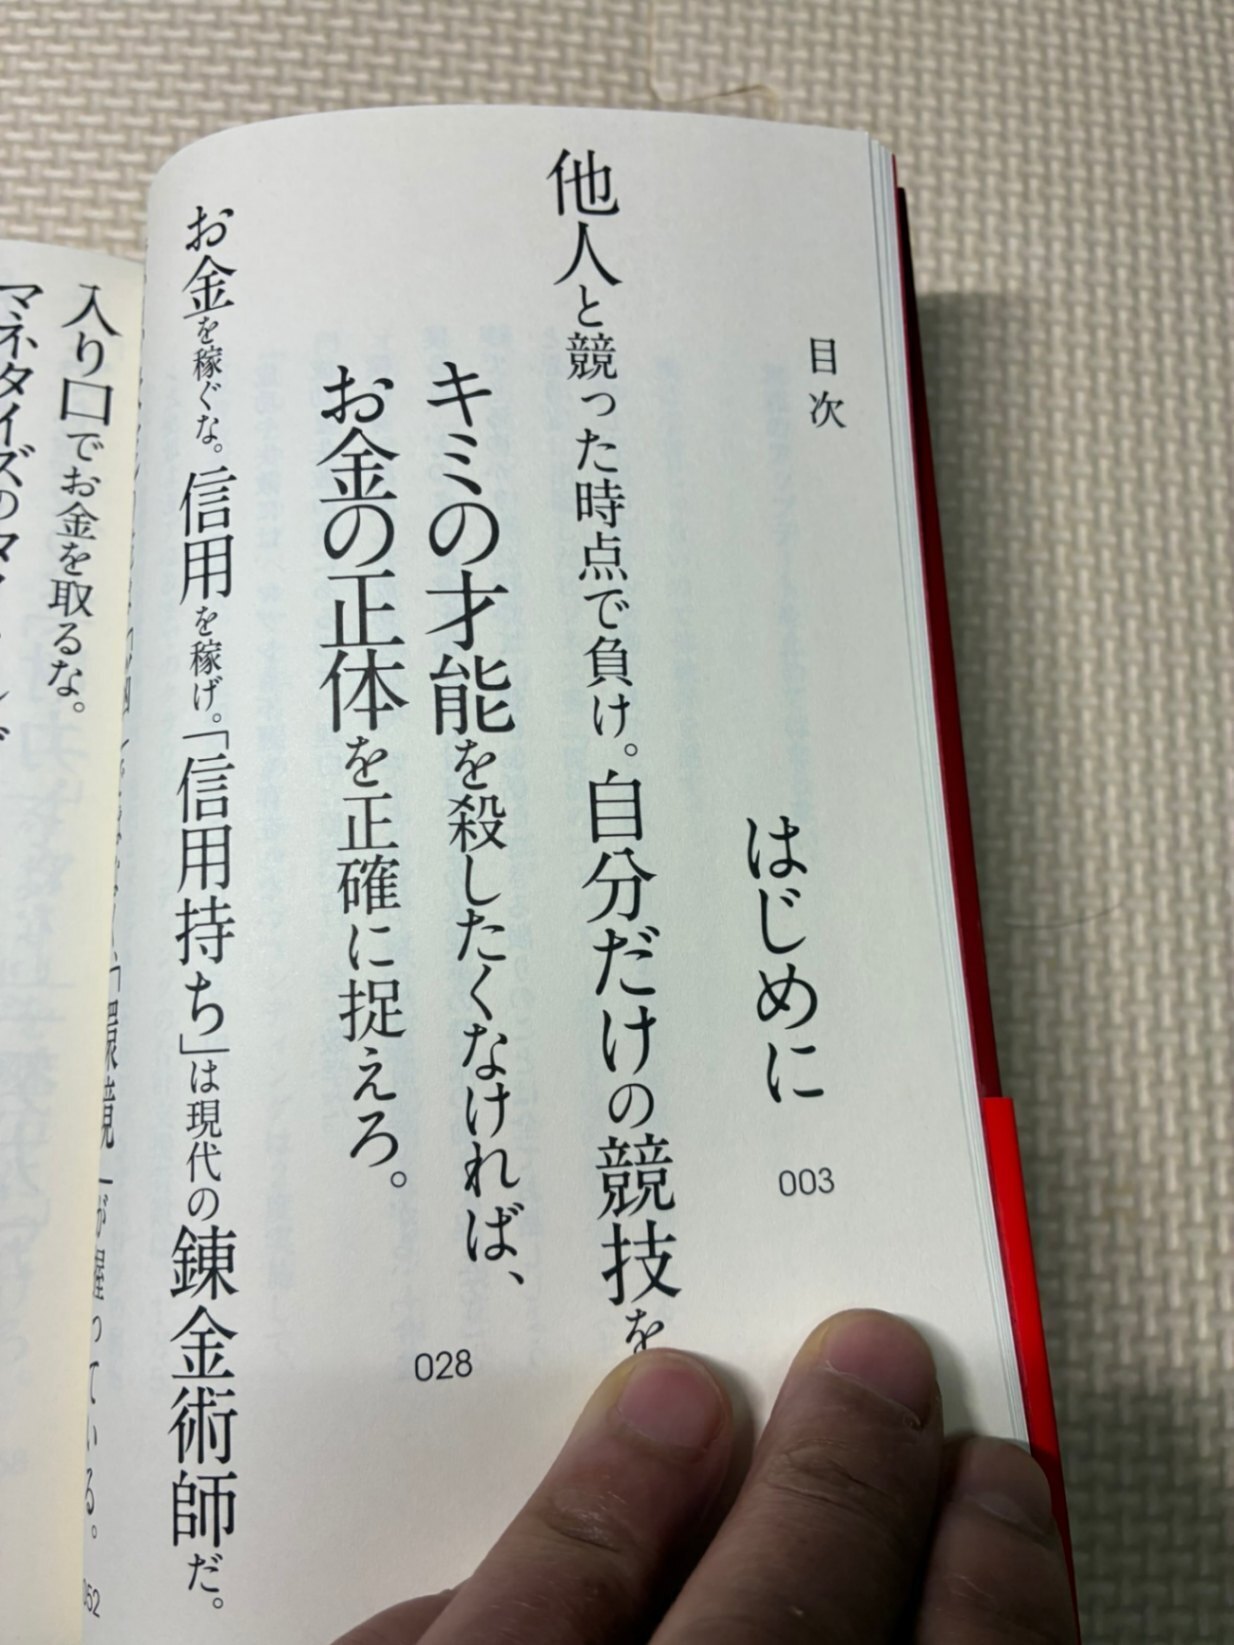 目次
はじめに
003
他人と競った時点で負け。自分だけの競技を
キミの才能を殺したくなければ、
お金の正体を正確に捉えろ。
028
お金を稼ぐな。信用を稼げ。「信用持ち」は現代の錬金術師だ。
が握っている。
052
入り口でお金を取るな。
マネタイズのタ